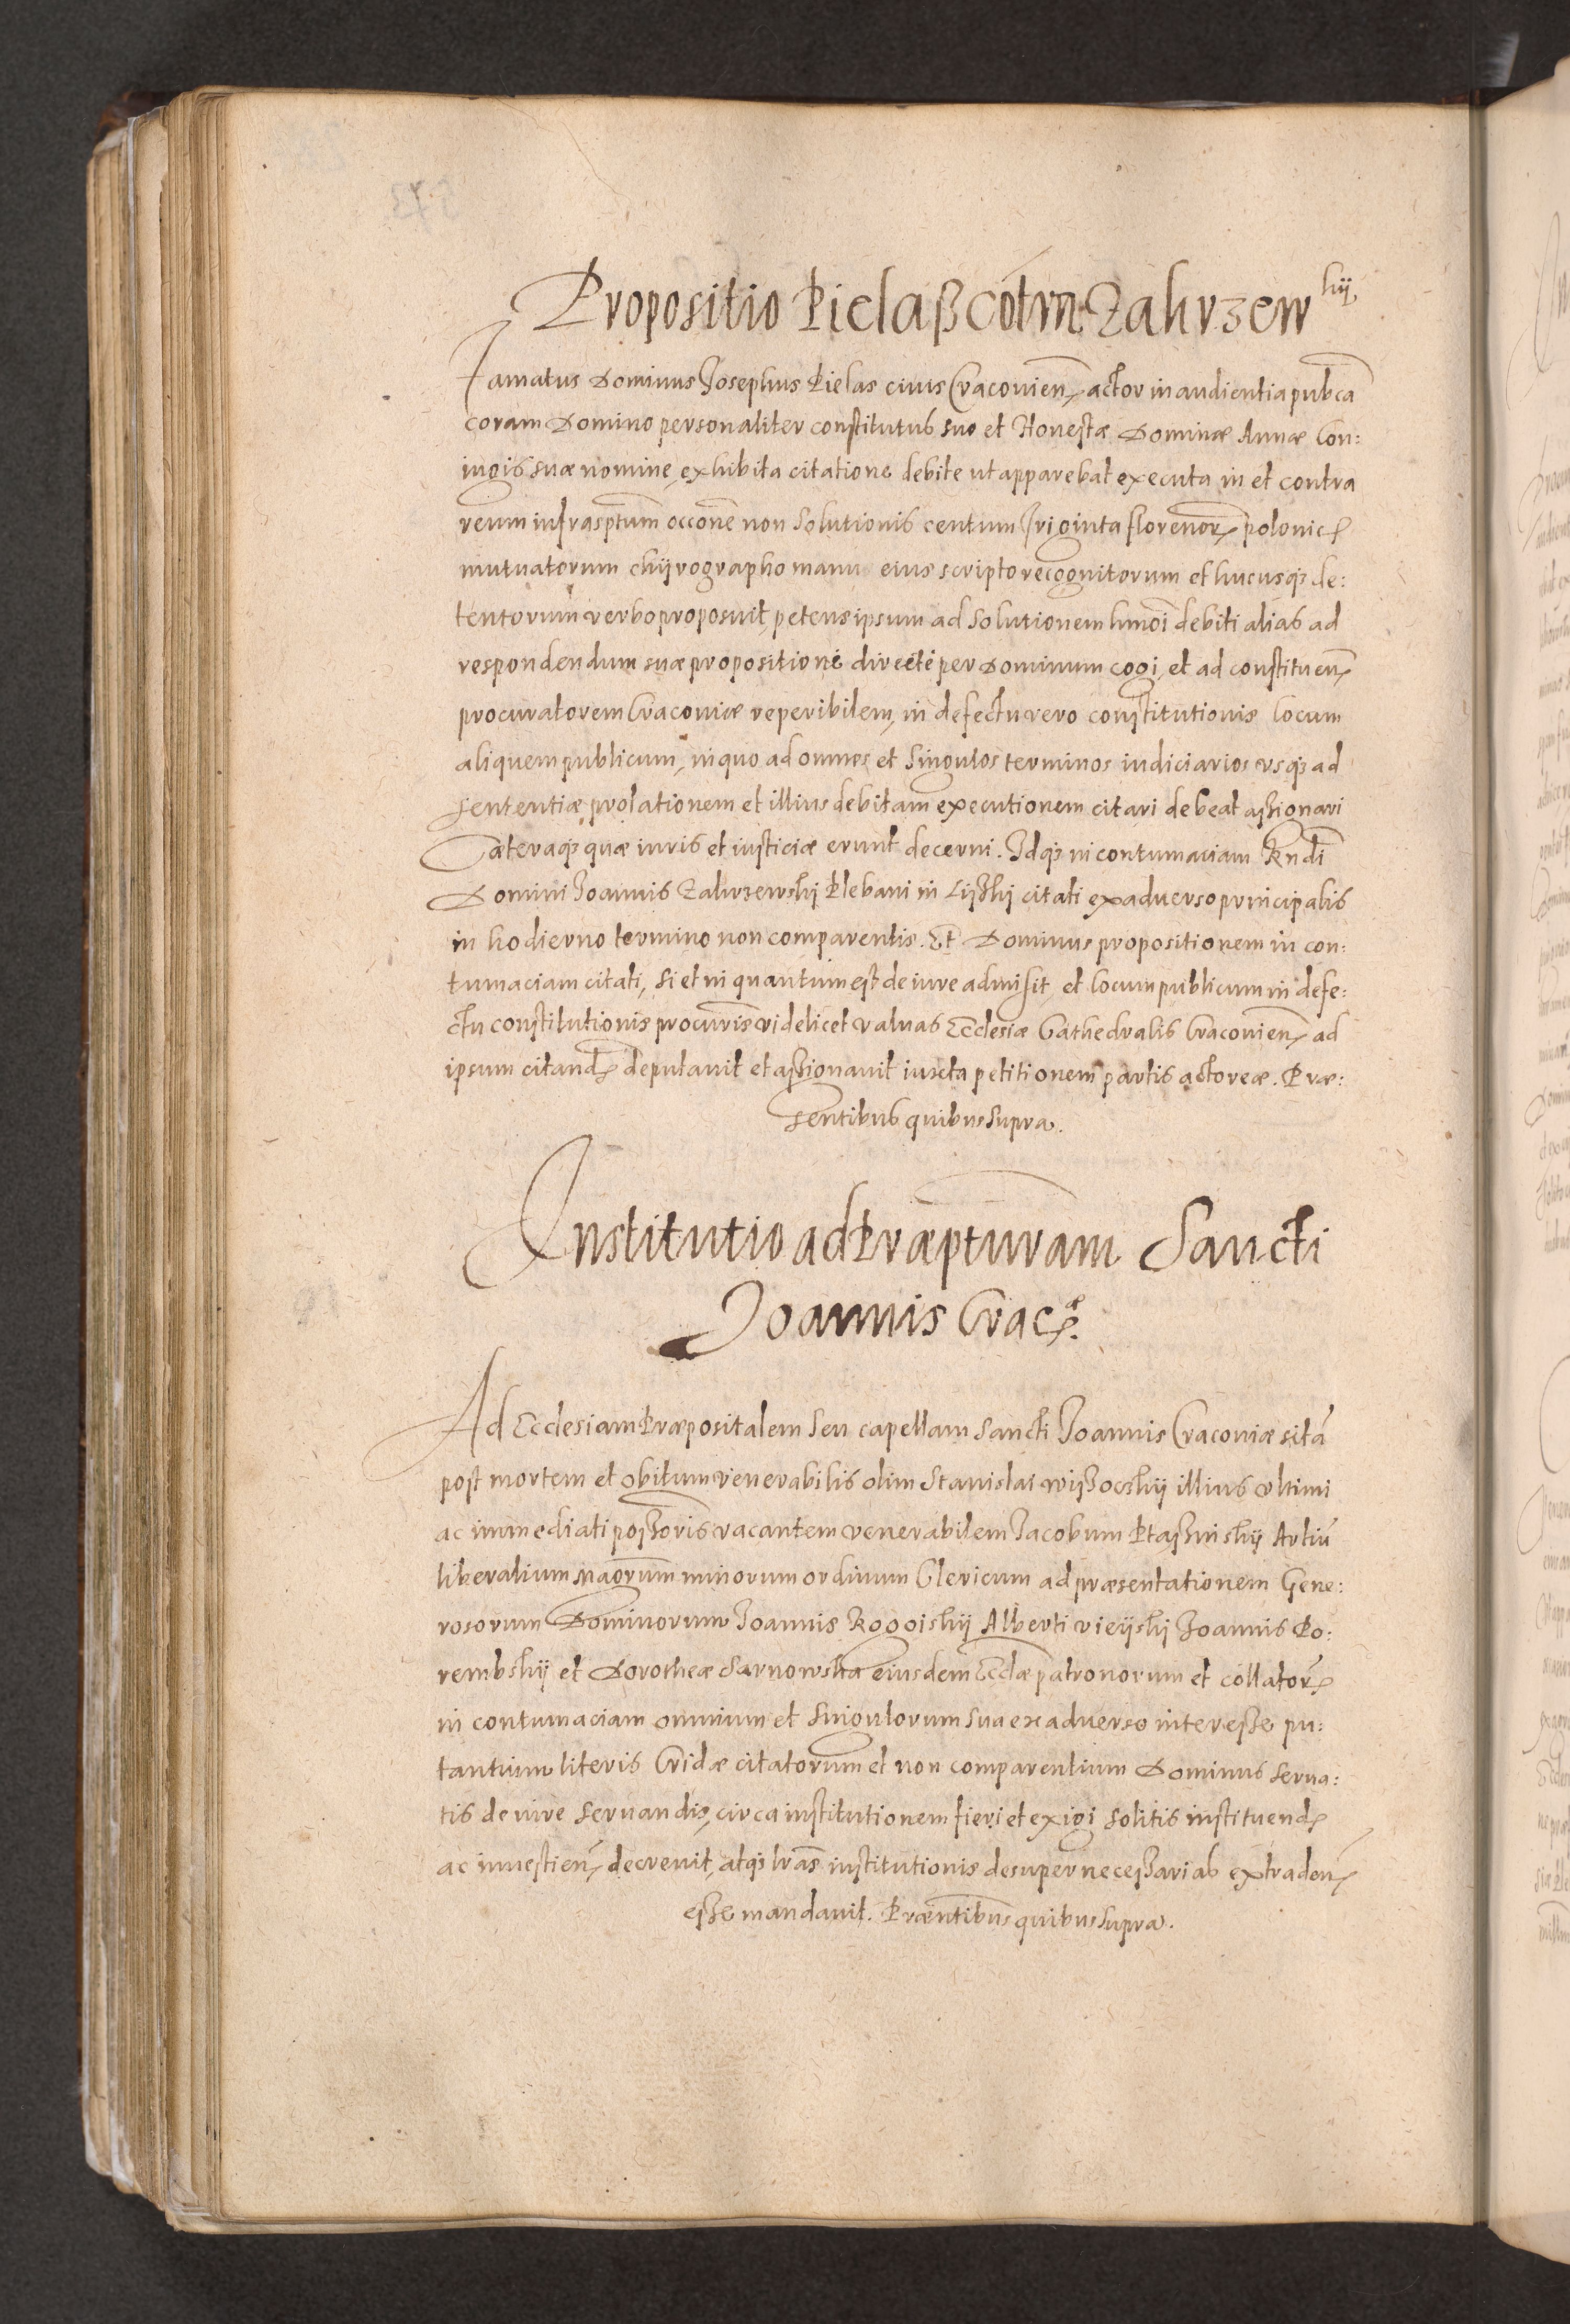 Propositio Pielaß cõtra Zakrzewskij
Famatus Dominus Josephus Pielas ciuis Cracovień actor in audientia pubca
coram Domino personaliter constitutus suo et Honestæ Dominæ Annæ Con:
iugis suæ nomine, exhibita citatione debite ut apparebat executa in et contra
reum infrasptum occone non solutionis centum triginta florenor polonic
mutuatorum chijrographo manu eius scripto recognitorum et hucusq de:
tentorum verbo proposuit, petens ipsum ad solutionem hmoi debiti alias ad
respondendum suæ propositioni directe per Dominum cogi, et ad constituen
procuratorem Cracoviæ reperibilem, in defectu vero constitutionis locum
aliquem publicum, in quo ad omnes et singulos terminos iudiciarios usq ad
sententiæ prolationem et illius debitam executionem citari debeat assignari
Cæteraq quæ iuris et iusticiæ erunt decerni. Idq in contumaciam Rndi
Domini Joannis Zakrzewskij Plebani in Lijszkij citati ex adverso principalis
in hodierno termino non comparentis. Et Dominus propositionem in con:
tumaciam citati, si et in quantum est de iure admisit, et locum publicum in defe:
ctu constitutionis procuris videlicet valvas Ecclesiæ Cathedralis Cracovień ad
ipsum citand deputavit et assignavit iuxta petitionem partis actoreæ. Præ:
sentibus quibus supra.
Institutio ad Præpturam Sancti
Joannis Crac.
Ad Ecclesiam Præpositalem seu capellam Sancti Joannis Cracoviæ sitã
post mortem et obitum venerabilis olim Stanislai Wijsockij illius ultimi
ac immediati possoris vacantem venerabilem Jacobum Ptassinskij Artiũ
liberalium magrum minorum ordinum Clericum ad præsentationem Gene:
rosorum Dominorum Joannis Rogoiskij Alberti Joannis Po:
rembskij et Dorotheæ Sarnowska eiusdem Eccliæ patronorum et collator
in contumaciam omnium et singulorum sua ex adverso interesse pu:
tantium literis Cridæ citatorum et non comparentium Dominus serva:
tis de iure servandis, circa institutionem fieri et exigi solitis instituend
ac investien decrevit, atq lras institutionis desuper necessarias extraden
esse mandavit. Præntibus quibus supra.